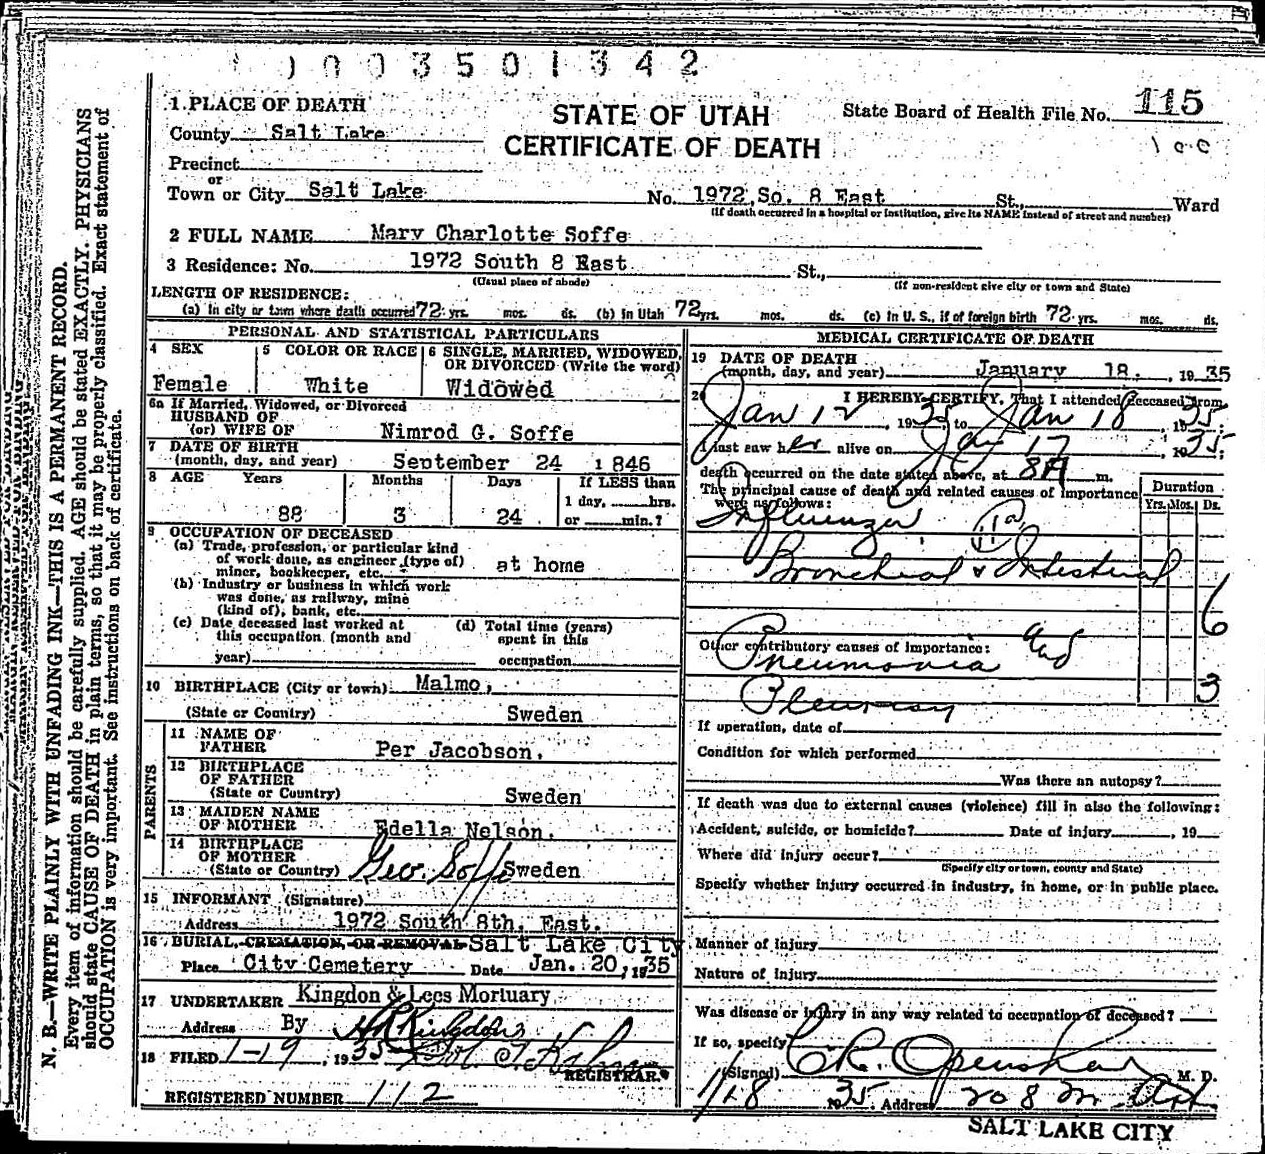 0003501342
1 PLACE OF DEATH
STATE OF UTAH
CERTIFICATE OF DEATH
State Board of Health File No. 115
100
County Salt Lake
Precinct
or
Town or City Salt Lake No. 1972 So. 8 East St., Ward
(If death occurred in a hospital or institution, give its NAME instead of street and number)
2 FULL NAME Mary Charlotte Soffe
3 Residence: No. 1972 South 8 East St.,
(Usual place of abode) (If non-resident give city or town and State)
LENGTH OF RESIDENCE:
(a) In city or town where death occurred 72 yrs. mos. ds. (b) in Utah 72 yrs. mos. ds. (c) in U. S., if of foreign birth 72 yrs. mos. ds.
PERSONAL AND STATISTICAL PARTICULARS
4 SEX
Female
5 COLOR OR RACE
White
6 SINGLE, MARRIED, WIDOWED,
OR DIVORCED (Write the word)
Widowed
6a If Married, Widowed, or Divorced
HUSBAND OF
(or) WIFE OF Nimrod G. Soffe
7 DATE OF BIRTH
(month, day, and year) September 24 1846
8 AGE Years Months Days If LESS than
1 day, hrs.
88 3 24 or min.?
9 OCCUPATION OF DECEASED
(a) Trade, profession, or particular kind
of work done, as engineer (type of)
miner, bookkeeper, etc. at home
(b) Industry or business in which work
was done, as railway, mine
(kind of), bank, etc.
(c) Date deceased last worked at
this occupation (month and
year)
(d) Total time (years)
spent in this
occupation
10 BIRTHPLACE (City or town) Malmo,
(State or Country) Sweden
PARENTS
11 NAME OF
FATHER Per Jacobson.
12 BIRTHPLACE
OF FATHER
(State or Country) Sweden
13 MAIDEN NAME
OF MOTHER Edella Nelson.
14 BIRTHPLACE
OF MOTHER
(State or Country) Sweden
Geo. Soffe
15 INFORMANT (Signature)
Address 1972 South 8th. East.
16 BURIAL, CREMATION, OR REMOVAL Salt Lake City
Place City Cemetery Date Jan. 20, 1935
17 UNDERTAKER Kingdon & Lees Mortuary
Address By
18 FILED 1-19, 1935
REGISTRAR.
REGISTERED NUMBER 112
MEDICAL CERTIFICATE OF DEATH
19 DATE OF DEATH
(month, day, and year) January 18. , 1935
20 I HEREBY CERTIFY, That I attended deceased from
Jan 12, 1935 to Jan 18, 1935;
I last saw her alive on Jan 17, 1935;
death occurred on the date stated above, at 8 A m.
The principal cause of death and related causes of importance
were as follows:
Duration
Yrs. Mos. Ds.
Influenza
Bronchial & Intestinal
6
Other contributory causes of importance:
Pneumonia and
Pleurisy
3
If operation, date of
Condition for which performed
Was there an autopsy?
If death was due to external causes (violence) fill in also the following:
Accident, suicide, or homicide? Date of injury , 19
Where did injury occur?
(Specify city or town, county and State)
Specify whether injury occurred in industry, in home, or in public place.
Manner of injury
Nature of injury
Was disease or injury in any way related to occupation of deceased?
If so, specify
(Signed) C.R. Openshaw M. D.
1/18 1935. Address 208 M
SALT LAKE CITY
N. B.—WRITE PLAINLY WITH UNFADING INK—THIS IS A PERMANENT RECORD.
Every item of information should be carefully supplied. AGE should be stated EXACTLY. PHYSICIANS
should state CAUSE OF DEATH in plain terms, so that it may be properly classified. Exact statement of
OCCUPATION is very important. See instructions on back of certificate.